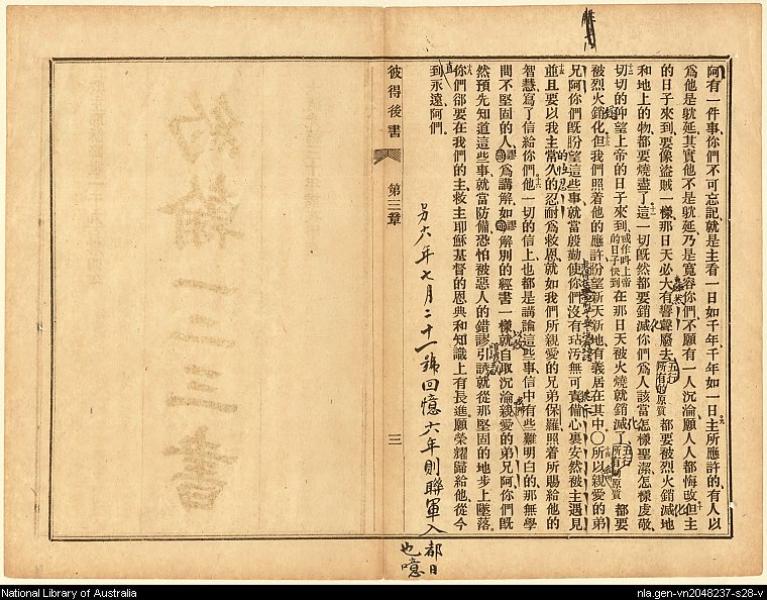 阿有一件事你們不可忘記就是主看一日如千年千年如一日主所應許的有人以
爲他是躭延其實他不是躭延乃是寬容你們不願有一人沉淪願人人都悔改但主
的日子來到要像盜賊一樣那日天必大有響聲廢去所有的原質都要被烈火銷滅地
和地上的物都要燒盡了這一切旣然都要銷滅你們爲人該當怎樣聖潔怎樣虔敬
切切的仰望上帝的日子來到或作叫上帝的日子快到在那日天被火燒就銷滅了所有的原質都要
被烈火銷化但我們照着他的應許盼望新天新地有義居在其中〇所以親愛的弟
兄阿你們旣盼望這些事就當殷勤使你們沒有玷汚無可責備心裏安然被主遇見
並且要以我主常久的忍耐爲救恩就如我們所親愛的兄弟保羅照着所賜給他的
智慧寫了信給你們他一切的信上也都是講論這些事信中有些難明白的那無學
問不堅固的人謬爲講解如謬解別的經書一樣就自取沉淪親愛的弟兄阿你們旣
然預先知道這些事就當防備恐怕被惡人的錯謬引誘就從那堅固的地步上墜落
你們卻要在我們的主救主耶穌基督的恩典和知識上有長進願榮耀歸給他從今
直到永遠阿們
六年七月二十一號回憶六年則聯軍入都日也噫
彼得後書
第三章
三
約翰一二三書
National Library of Australia
nla.gen-vn2048237-s28-v